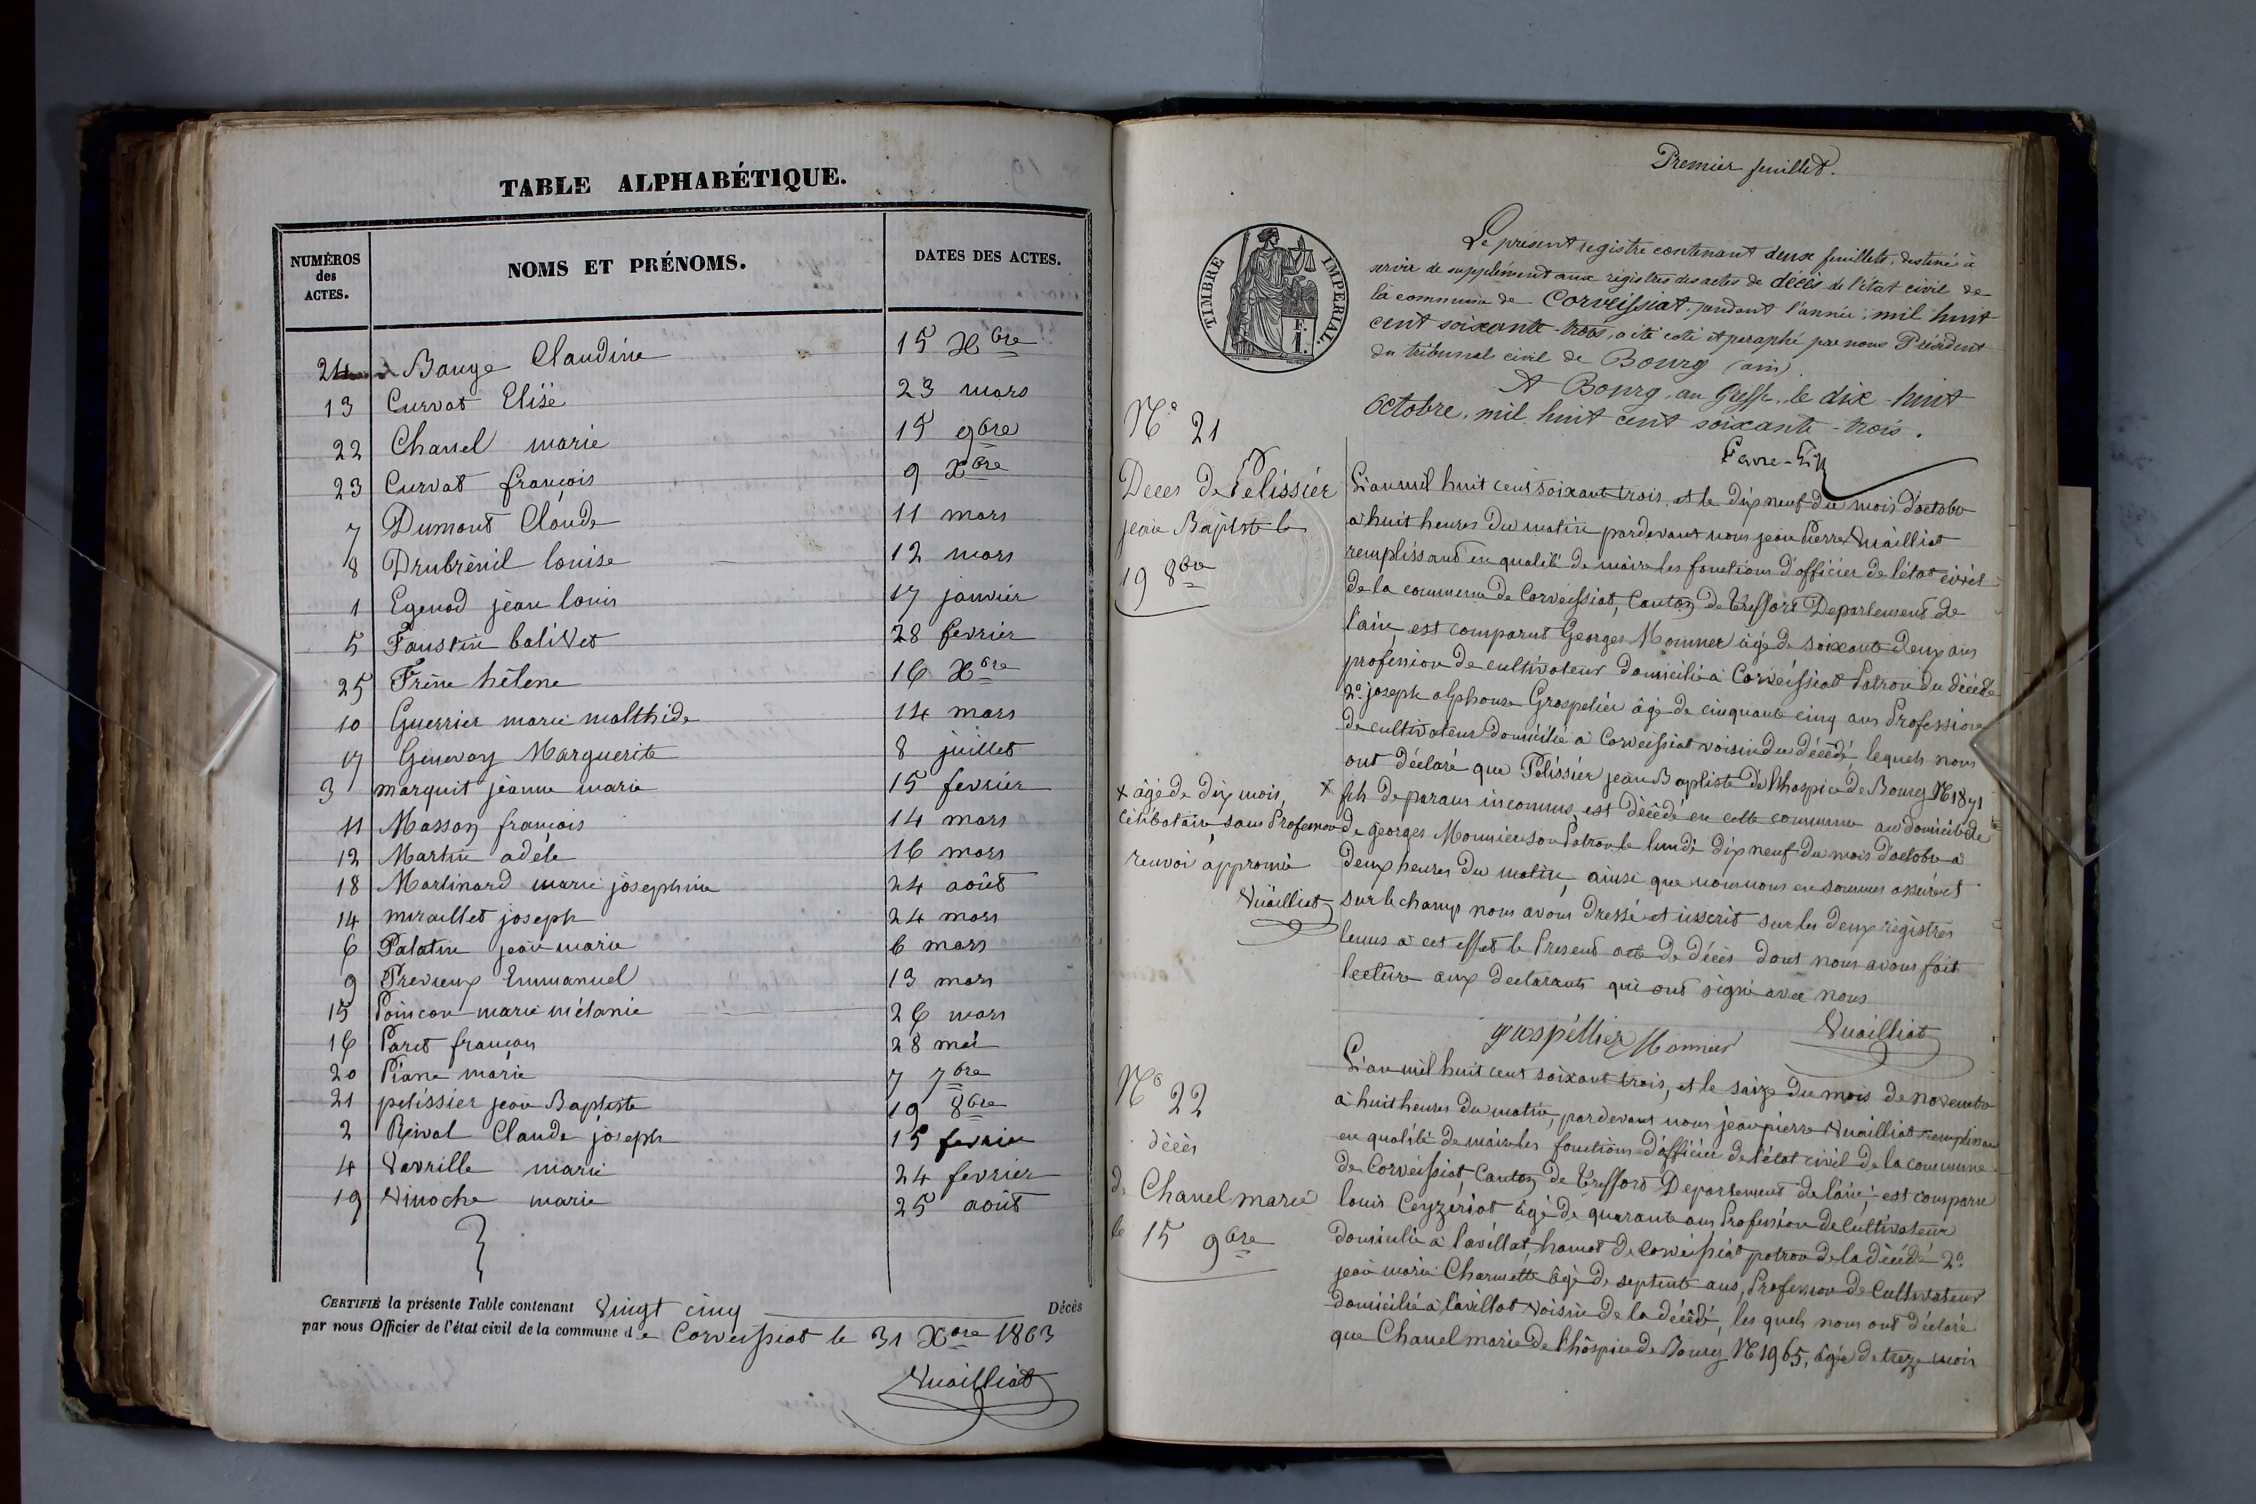 TABLE ALPHABÉTIQUE.
NUMÉROS des ACTES. NOMS ET PRÉNOMS. DATES DES ACTES.
24 Bauge Claudine 15 Xbre
13 Curvat Elisé 23 mars
22 Chanel marie 15 9bre
23 Curvat françois 9 Xbre
7 Dumont Claude 11 mars
8 Drubrénil louise 12 mars
1 Egenod jean louis 17 janvier
5 Faustin balivet 28 fevrier
25 Frêne hélene 16 Xbre
10 Guerrier marie malthide 14 mars
17 Genevay Marguerite 8 juillet
3 marquit jeanne marie 15 fevrier
11 Masson francois 14 mars
12 Martin adèle 16 mars
18 Martinard marie josephine 24 août
14 miraillet joseph 24 mars
6 Palatin jean marie 6 mars
9 Previeux Emmanuel 13 mars
15 Poincon marie mélanie 26 mars
16 Paret françois 28 mai
20 Piane marie 7 7bre
21 pelissier jean Baptiste 19 8bre
2 Rival Claude joseph 15 fevrier
4 Vavrille marie 24 fevrier
19 Vinoche marie 25 août
CERTIFIÉ la présente Table contenant Vingt cinq Décès
par nous Officier de l'état civil de la commune de Corveissiat le 31 Xbre 1863
Vuailliat
Premier feuillet.
TIMBRE IMPERIAL.
Le présent registre contenant deux feuillets, destiné à
servir de supplément aux registres des actes de décès de l'état civil de
la commune de Corveissiat, pendant l'année mil huit
cent soixante-trois, a été coté et paraphé par nous Président
du tribunal civil de Bourg (ain).
A Bourg, au Greffe, le dix-huit
Octobre, mil huit cent soixante-trois.
N° 21
Deces de Pelissier
jean Baptiste le
19 8bre
L'an mil huit cent soixante trois, et le dix neuf du mois d'octobre
à huit heures du matin pardevant nous jean Pierre Vuailliat
remplissant en qualité de maire les fonctions d'officier de l'état civil
de la commune de Corveissiat, Canton de Treffort Departement de
l'ain, est comparut Georges Monnier âgé de soixante deux ans
profession de cultivateur domicilié à Corveissiat Patron du décédé
2° joseph alphonse Grospelier âgé de cinquante cinq ans Profession
de cultivateur domicilié à Corveissiat voisin du décédé, lequels nous
ont déclaré que Pelissier jean Baptiste de l'hospice de Bourg N° 1871
x âgé de dix mois,
célibataire, sans Profession
renvoi approuvé
Vuailliat
x fils de parans inconnus, est décédé en cette commune au domicile de
de georges Monnier son Patron le lundi dix neuf du mois d'octobre à
deux heures du matin, ainsi que nous nous en sommes assuré et
sur le champ nous avons dressé et inscrit sur les deux registres
tenus à cet effet le Present acte de décès dont nous avons fait
lecture aux declarants qui ont signé avec nous
grospellier Monnier Vuailliat
N° 22
décès
de Chanel marie
le 15 9bre
L'an mil huit cent soixante trois, et le seize du mois de novembre
à huit heures du matin, pardevant nous jean pierre Vuailliat remplissant
en qualité de maire les fonctions d'officier de l'état civil de la commune
de Corveissiat, Canton de Treffort Departement de l'ain, est comparu
louis Ceyzériat âgé de quarante ans Profession de Cultivateur
domicilié à l'avillat, hamot de Corveissiat patron de la décédé 2°
jean marie Charmette âgé de septente ans, Profession de Cultivateur
domicilié à l'avillat voisin de la décédé, les quels nous ont déclaré
que Chanel marie de l'hôspice de Bourg N° 1965, âgée de treze mois